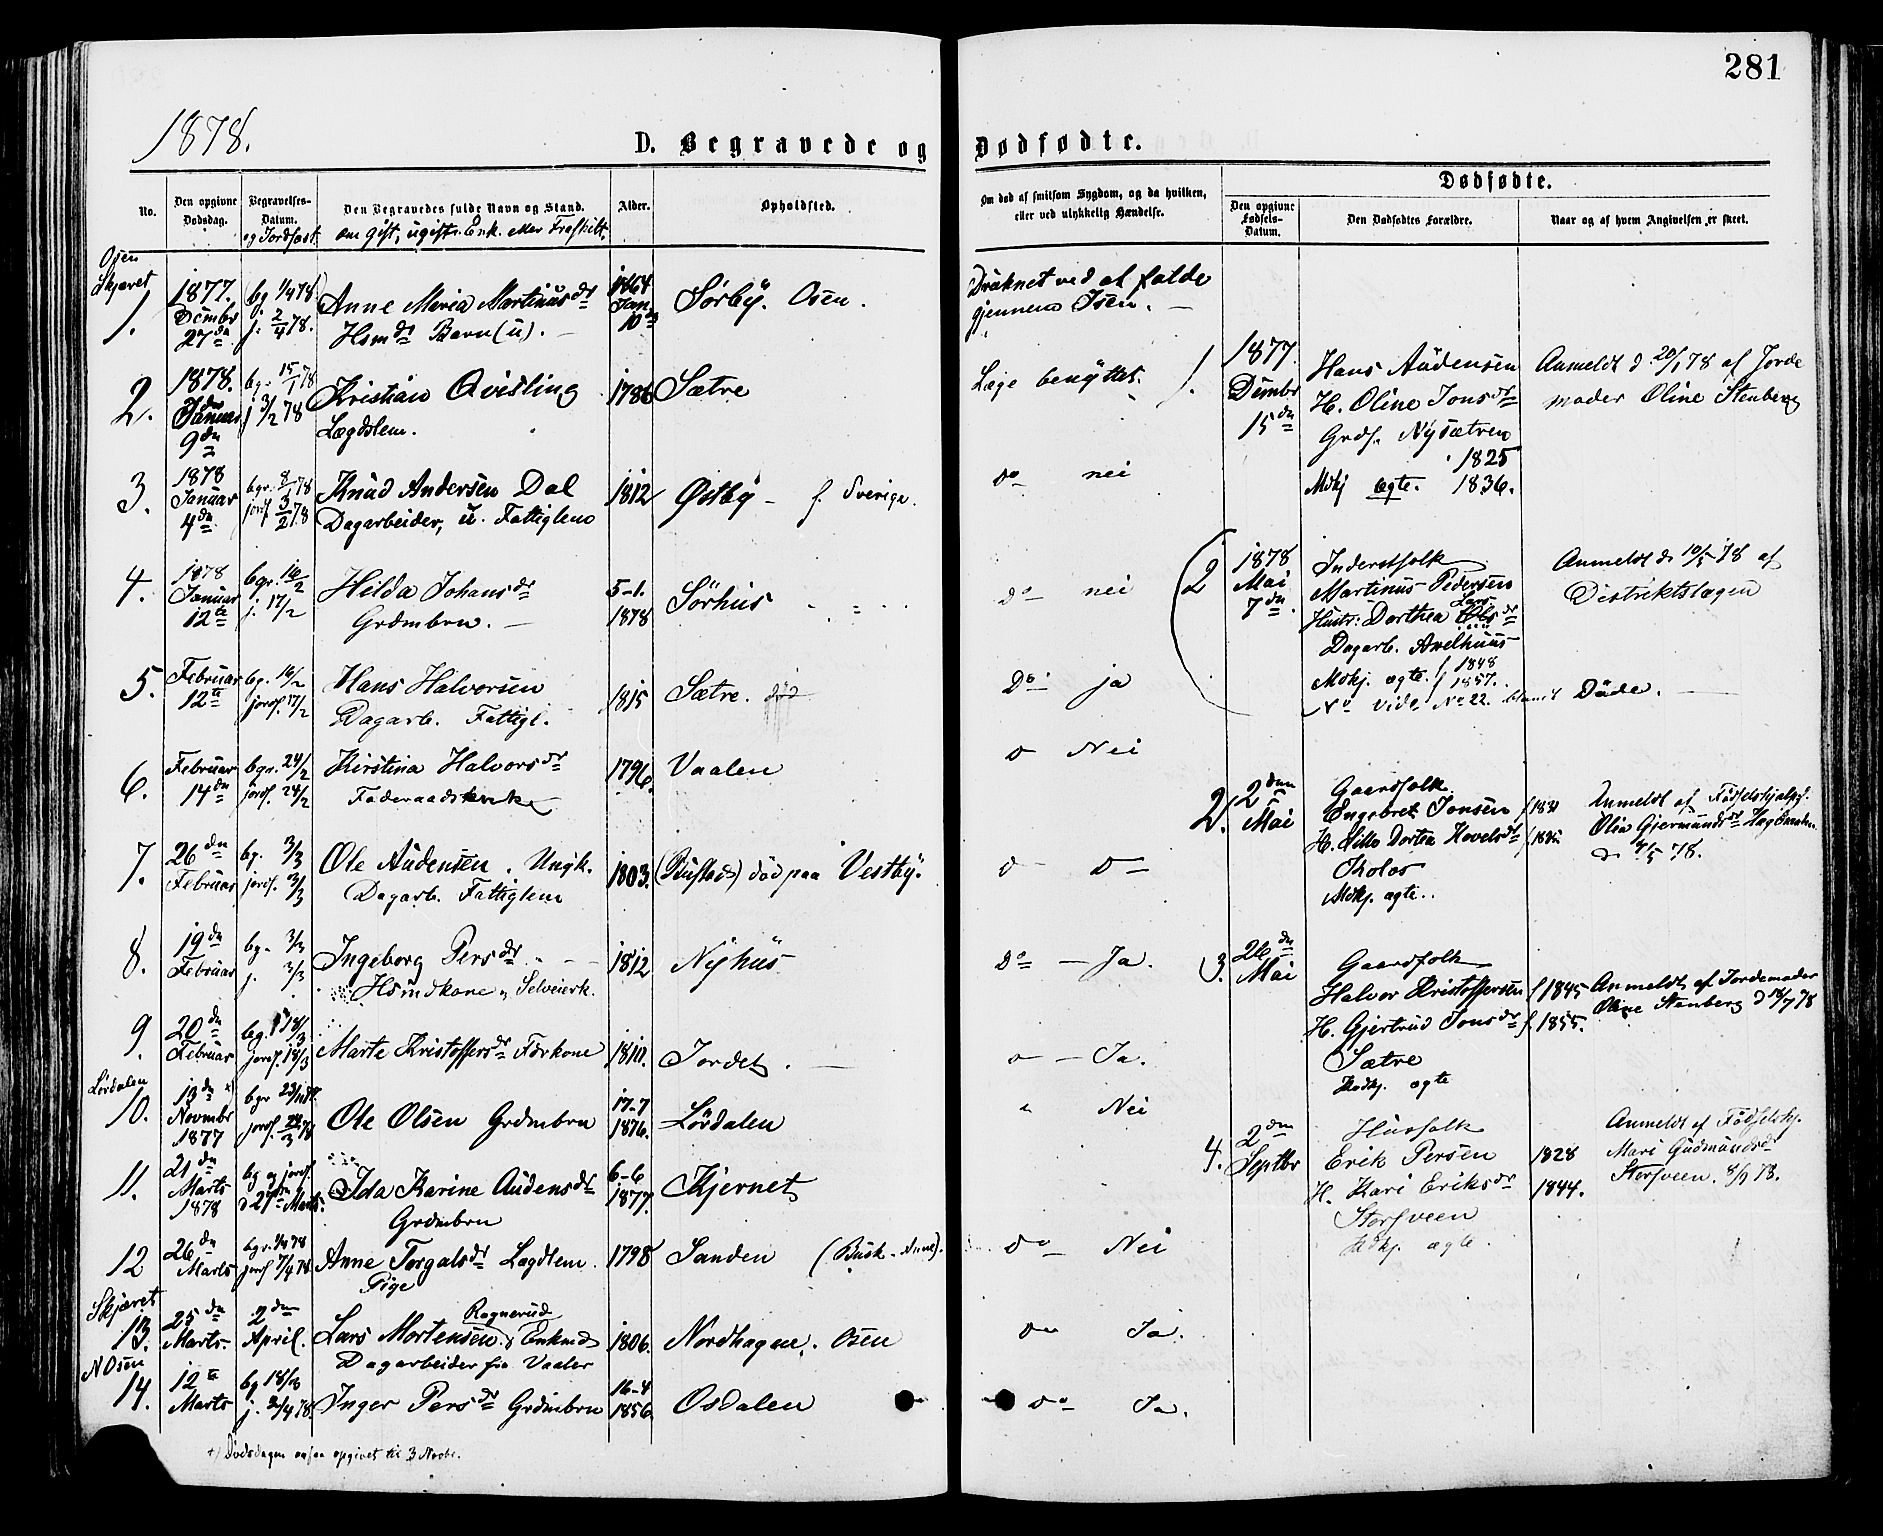 281
1878.
D. Begravede og Dødfødte.
No.
Den opgivne Dødsdag.
Begravelses-Datum.
og Jordfæst.
Den Begravedes fulde Navn og Stand.
om gift, ugift, Enk. eller Fraskilt.
Alder.
Opholdsted.
Om død af smitsom Sygdom, og da hvilken,
eller ved ulykkelig Hændelse.
Dødfødte.
Den opgivne Fødsels-Datum.
Den Dødfødtes Forældre.
Naar og af hvem Angivelsen er skeet.
Skjæret
1.
1877.
Dcmbr
27 de
bg 1/4 78
j. 2/4 78.
Anne Maria Martinusdr
Hsmds Barn (u).
1864
Jan
10
Sørby. Osen.
Druknet ved at falde
gjennem Isen.
2.
1878.
Januar
9 de
bgr 15/1 78
j 3/2 78
Kristian Qvisling
Lægdslem.
1786
Sætre
Læge benyttet.
3.
1878
Januar
4 de
bgr. 8/1 78
jordf 3/2 78
Knud Andersen Dal
Dagarbeider, u. Fattiglem
1812
Østby - f. Sverige.
do nei
4.
1878
Januar
12te
bgr. 16/2
j. 17/2
Hilda Johansdr
Grdmbrn.
5-1.
1878
Sørhus
do nei
5.
Februar
12te
bg. 16/2
jordf. 17/2
Hans Halvorsen
Dagarb. Fattigl.
1815
Sætre.
Do ja
6.
Februar
14 de
bgr. 24/2
jordf. 24/2
Kirstina Halvorsdr
Føderaadsenke
1796.
Vaalen
o Nei
7.
26 de
Februar
bg. 3/3
jordf. 3/3
Ole Audensen. Ungk.
Dagarb. Fattiglem
1803.
(Bustad) død paa Vestby.
8.
19 de
Februar
bg. 3/3
j. 3/3
Ingeborg Persdr
Hsmdkone, Selveierk.
1812
Nyhus
Do - Ja.
9.
20 de
Februar
bg. 18/3
jordf. 18/3
Marte Kristoffersdr Førkone
1810.
Jordet.
o - Ja.
Lørdalen
10.
13 de +)
Novmbr
1877
jordf. 24/3 78
Ole Olsen Grdmbrn
17-7
1876.
Lørdalen
Nei
11.
21 de
Marts
1878
bg og jordf.
d 27de Marts.
Ida Karine Audensdr
Grdmbrn
6-6
1877.
Kjernet
12
26 de
Marts
bgr. 1/4 78
jordf 7/4 78
Anne Torgalsdr Lægdlem.
Pige
1798
Sanden
do Nei
Skjæret
13.
25 de
Marts.
2 den
April.
Ragnerud
Lars Mortensen, Enkmd
Dagarbeider fra Vaaler
1806.
Nordhagen. Osen
do Ja.
N Osen
14.
12te
Marts
bg 18/3
j. 2/4 78.
Inger Persdr Grdmbrn
16-4
1856.
Osdalen
do Ja.
+) Dødsdagen ogsaa opgivet til 3 Novbr.
1.
1877.
Dcmbr
15 de
Hans Audensen
H. Oline Jonsdr
Grdf. Nysætren
1825
Mdkj ægte. 1836.
Anmeldt d 20/1 78 af Jorde
moder Oline Stenberg
2
1878
Mai
7 de.
Inderstfolk
Martinus Pedersen
Lars
Hustr: Dorthea Olsdr
Dagarb. Anelhuus
Mdkj. ægte. f 1848
f 1857.
No vide No 22. blandt Døde.
Anmeldt d 10/5 78 af
Distriktslægen
2.
2 den
Mai
Gaardfolk
Engebret Jonsen
H. Dortea Hovelsdr
Kolos
Mdkj. ægte.
Anmeldt af Fødselshjælpj.
Olia Gjermundsdr
78.
3.
26 de
Mai
Gaardfolk
Halvor Kristoffersen f 1845
H. Gjertrud Jonsdr f 1855.
Sætre
ægte
Anmeldt af Jordemoder
Oline Stenberg d 18/7 78
4.
2 den
Septbr
Husfolk
Erik Persen 1828
H. Kari Eriksdr 1844.
Storsveen
ægte.
Anmeldt af Fødselshj.
Mari Gudmundsdr
Storsveen. 8/9 78.